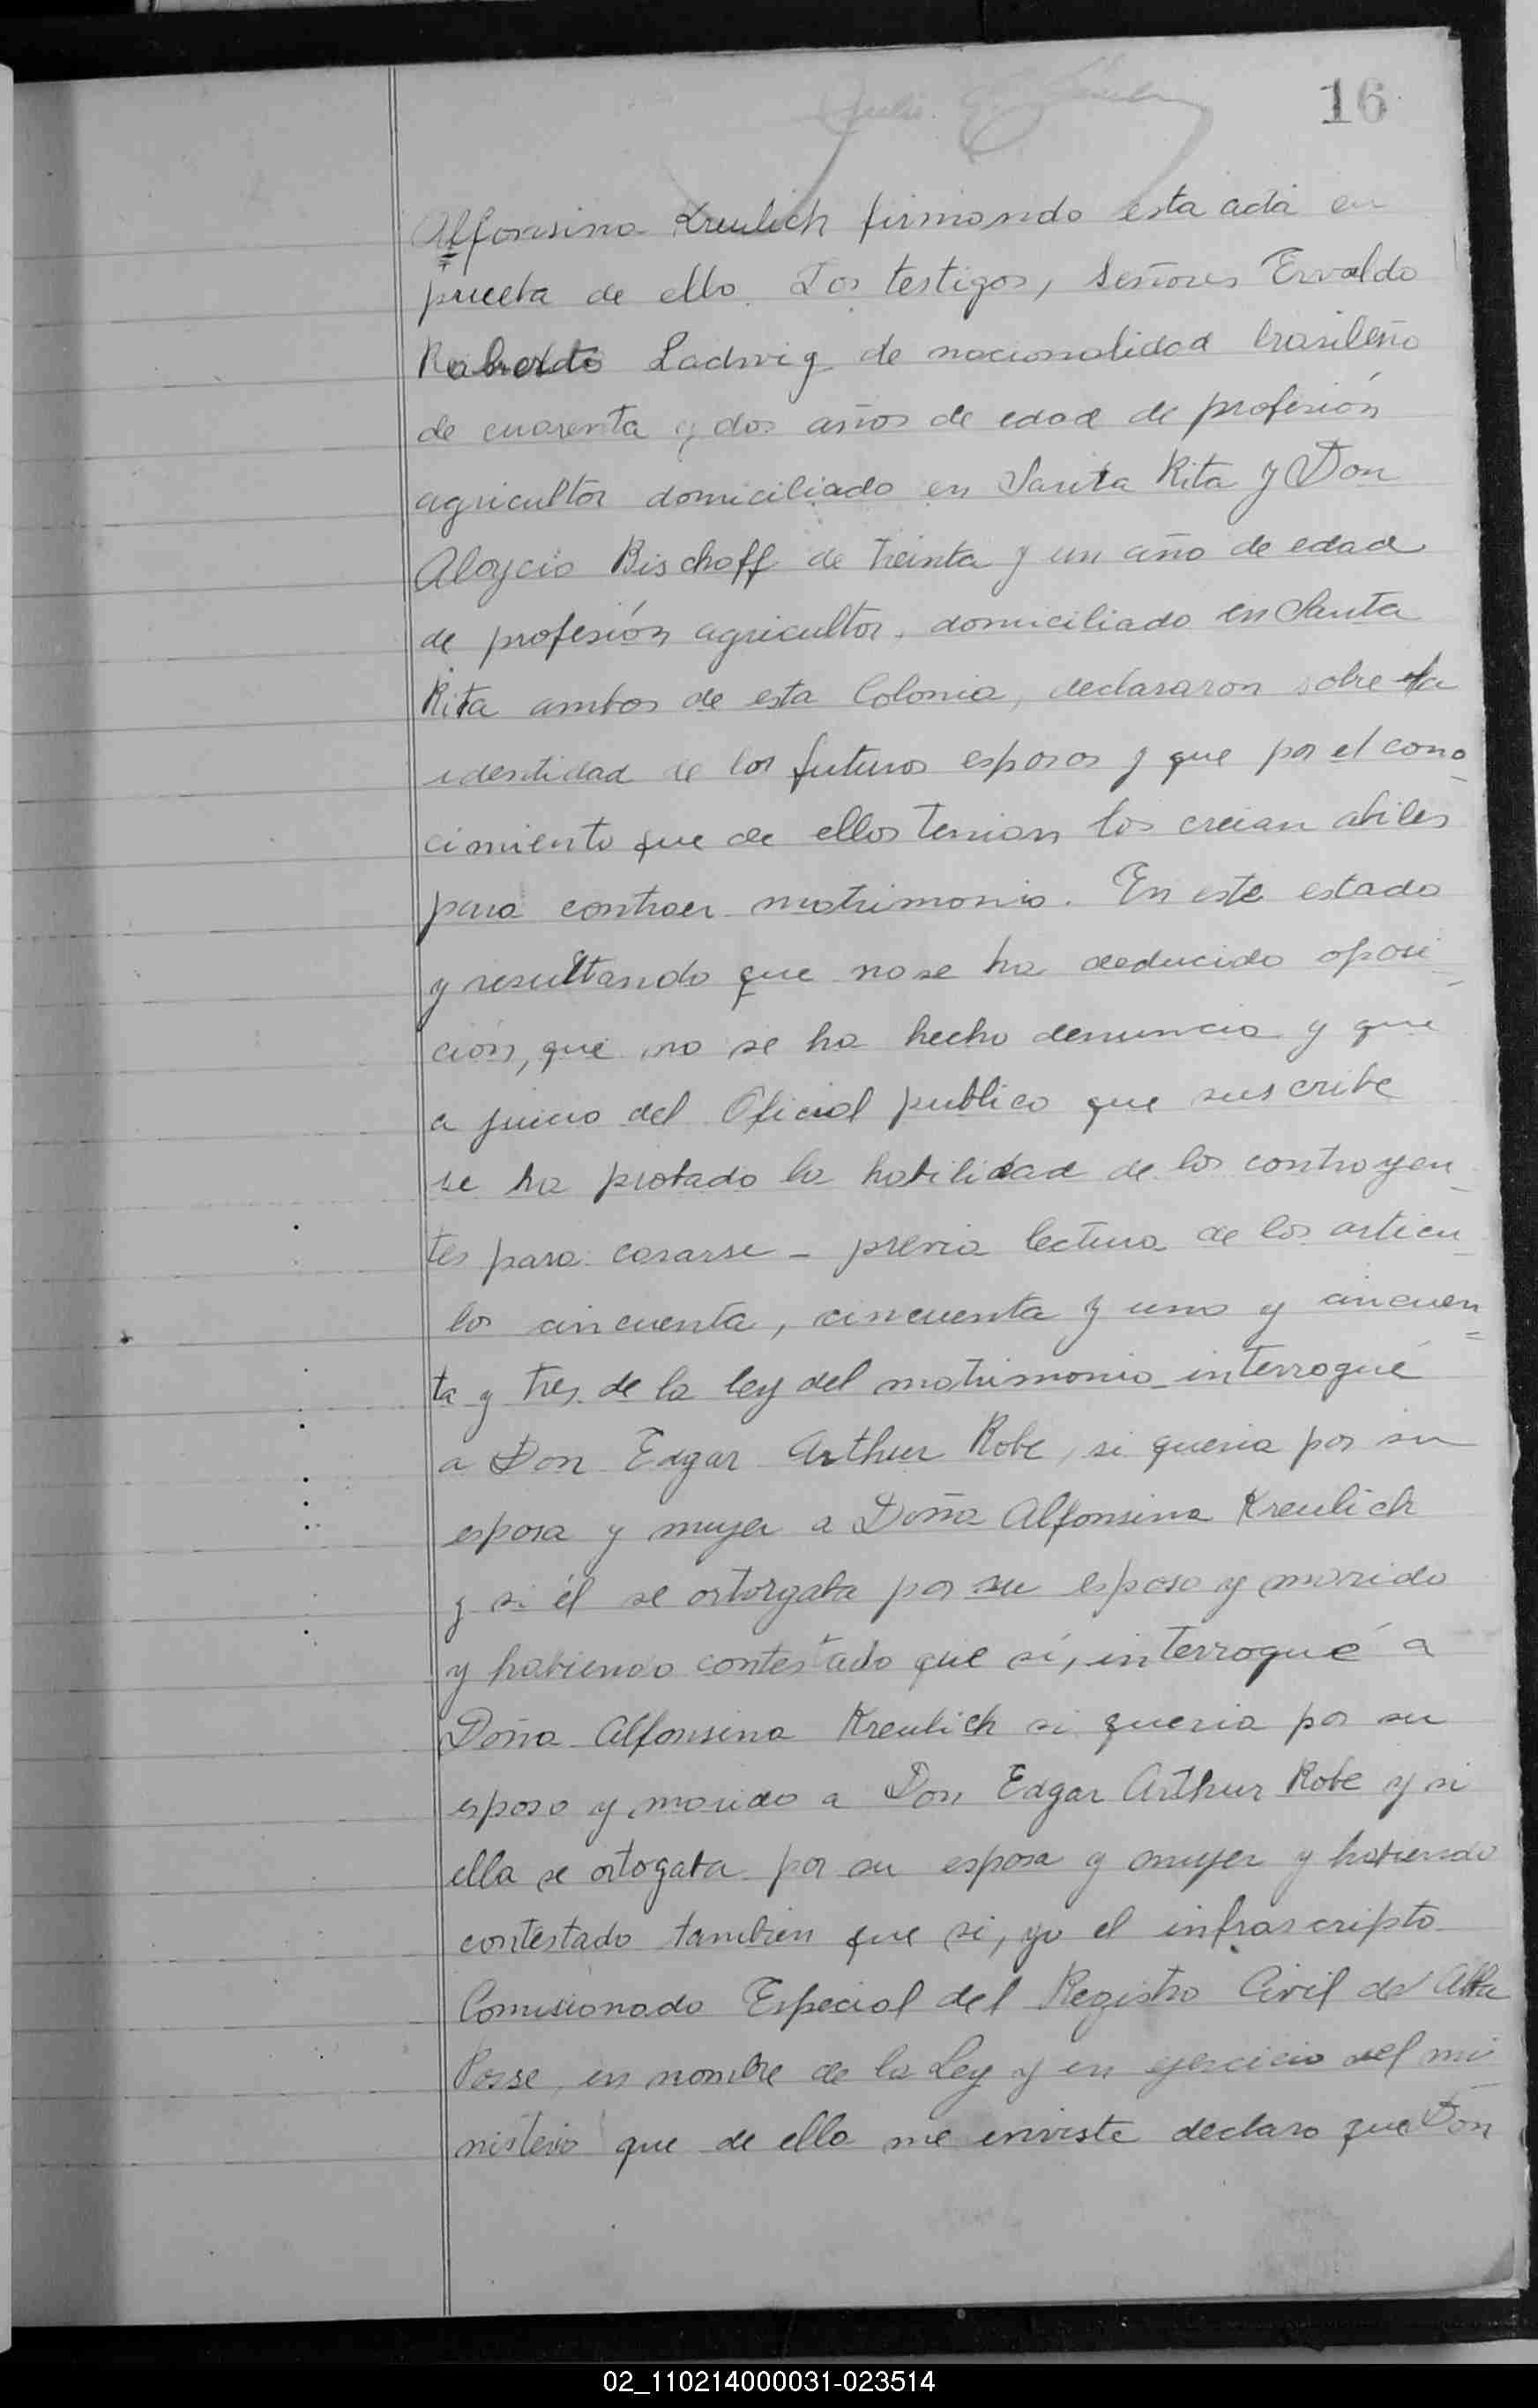 16
Alfonsina Kreulich firmando esta acta en
prueba de ello. Los testigos, Señores Ervaldo
Ladwig de nacionalidad brasileño
de cuarenta y dos años de edad de profesión
agricultor domiciliado en Santa Rita y Don
Aloycio Bischoff de treinta y un año de edad
de profesión agricultor, domiciliado en Santa
Rita ambos de esta Colonia, declararon sobre la
identidad de los futuros esposos y que por el cono-
cimiento que de ellos tenian los creian abiles
para contraer matrimonio. En este estado
y resultando que no se ha deducido oposi-
ción, que no se ha hecho denuncia y que
a juicio del Oficial publico que suscribe
se ha probado la habilidad de los contrayen-
tes para casarse - previa lectura de los articu-
los cincuenta, cincuenta y uno y cincuen=
ta y tres de la ley del matrimonio interrogué
a Don Edgar Arthur Robe, si queria por su
esposa y mujer a Doña Alfonsina Kreulich
y si él se ortorgaba por su esposo y marido
y habiendo contestado que sí, interrogué a
Doña Alfonsina Kreulich si queria por su
esposo y marido a Don Edgar Arthur Robe y si
ella se ortogaba por su esposa y mujer y habiendo
contestado tambien que si, yo el infrascripto
Comisionado Especial del Registro Civil de Alba
Posse, en nombre de la Ley y en ejercicio del mi-
nisterio que de ella me enviste declaro que Don
02_110214000031-023514